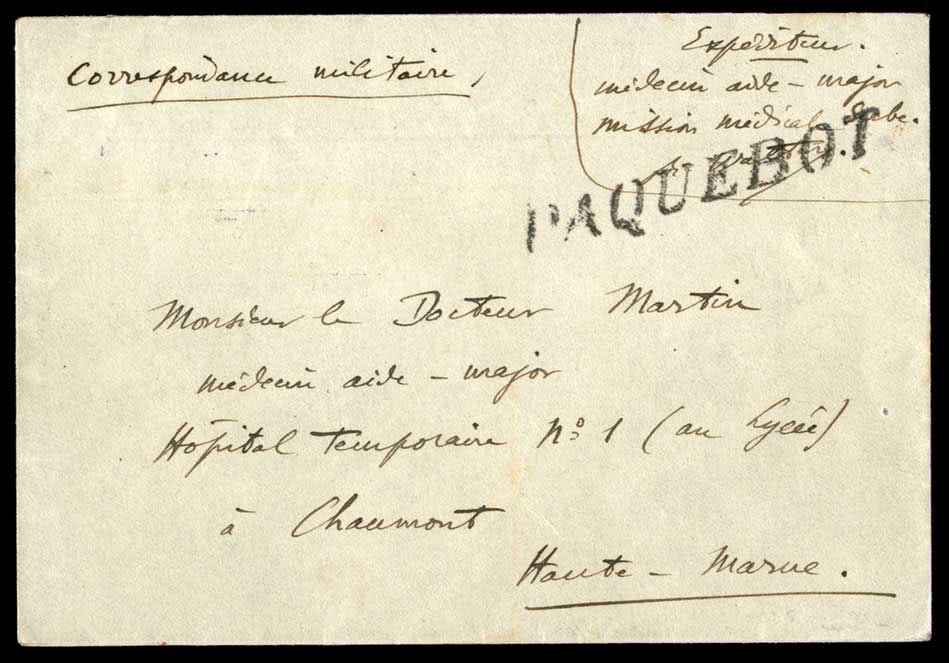 Correspondance militaire,
Expéditeur.
médecin aide-major
mission médicale Serbe.
PAQUEBOT
Monsieur le Docteur Martin
médecin aide-major
Hôpital Temporaire No 1 (au Lycée)
à Chaumont
Haute-Marne.